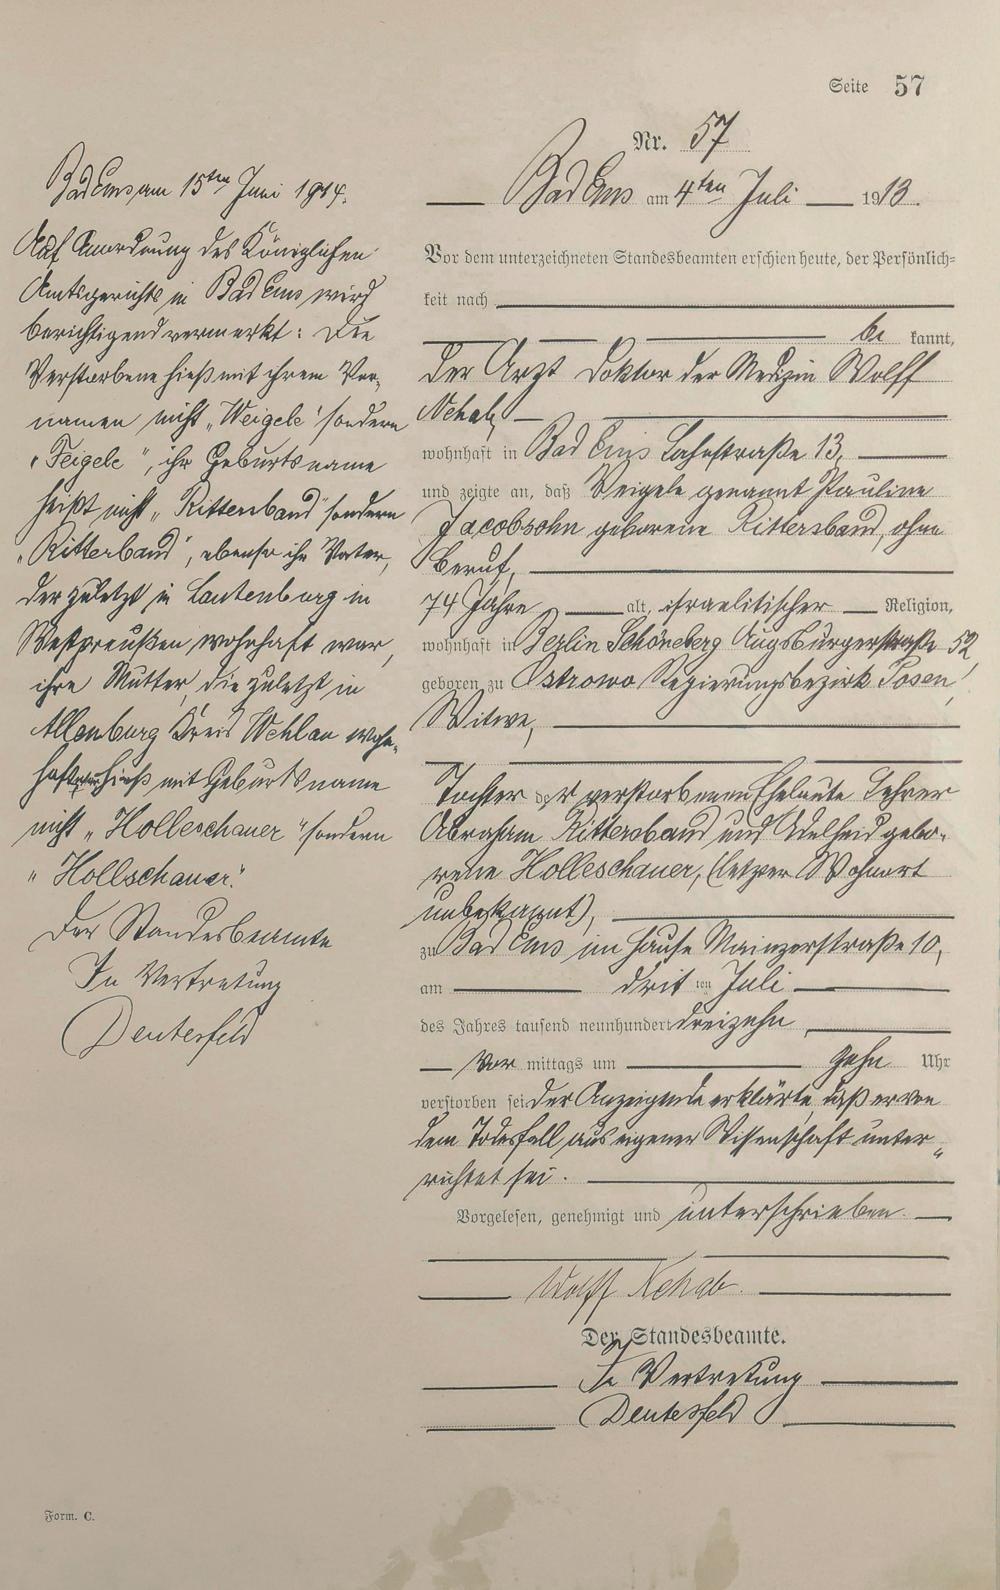 Seite 57
Nr. 57
Bad Ems am 4ten Juli 1913.
Vor dem unterzeichneten Standesbeamten erschien heute, der Persönlich=
keit nach
be kannt,
der Arzt Doktor der Medizin Wolff
Nehab,
wohnhaft in Bad Ems Lahnstraße 13,
und zeigte an, daß Veigele genannt Pauline
Jacobsohn geborene Rittersband, ohne
Beruf,
74 Jahre alt, israelitischer Religion,
wohnhaft in Berlin Schöneberg Augsburgerstraße 52,
geboren zu Ostrowo Regierungsbezirk Posen,
Witwe,
Tochter der verstorbenen Eheleute Lehrer
Abraham Rittersband und Adelheid gebo-
rene Holleschauer, (letzter Wohnort
unbekannt),
zu Bad Ems im Hause Mainzerstraße 10,
am dritten Juli
des Jahres tausend neunhundert dreizehn,
Vor mittags um zehn Uhr
verstorben sei. Der Anzeigende erklärte, daß er von
dem Todesfall aus eigener Wissenschaft unter-
richtet sei.
Vorgelesen, genehmigt und unterschrieben.
Wolff Nehab.
Der Standesbeamte.
In Vertretung
Deutesfeld
Bad Ems am 15ten Juni 1914.
Auf Anordnung des Königlichen
Amtsgerichts in Bad Ems wird
berichtigend vermerkt: Die
Verstorbene hieß mit ihrem Vor-
namen nicht „Weigele" sondern
„Feigele", ihr Geburtsname
heißt nicht „Rittersband" sondern
„Ritterband", ebenso ihr Vater,
der zuletzt in Lautenburg in
Westpreußen wohnhaft war,
ihre Mutter, die zuletzt in
Allenburg Kreis Wehlau wohn-
haft war hieß mit Geburtsname
nicht „Holleschauer" sondern
„Hollschauer".
Der Standesbeamte
In Vertretung
Deutesfeld
Form. C.